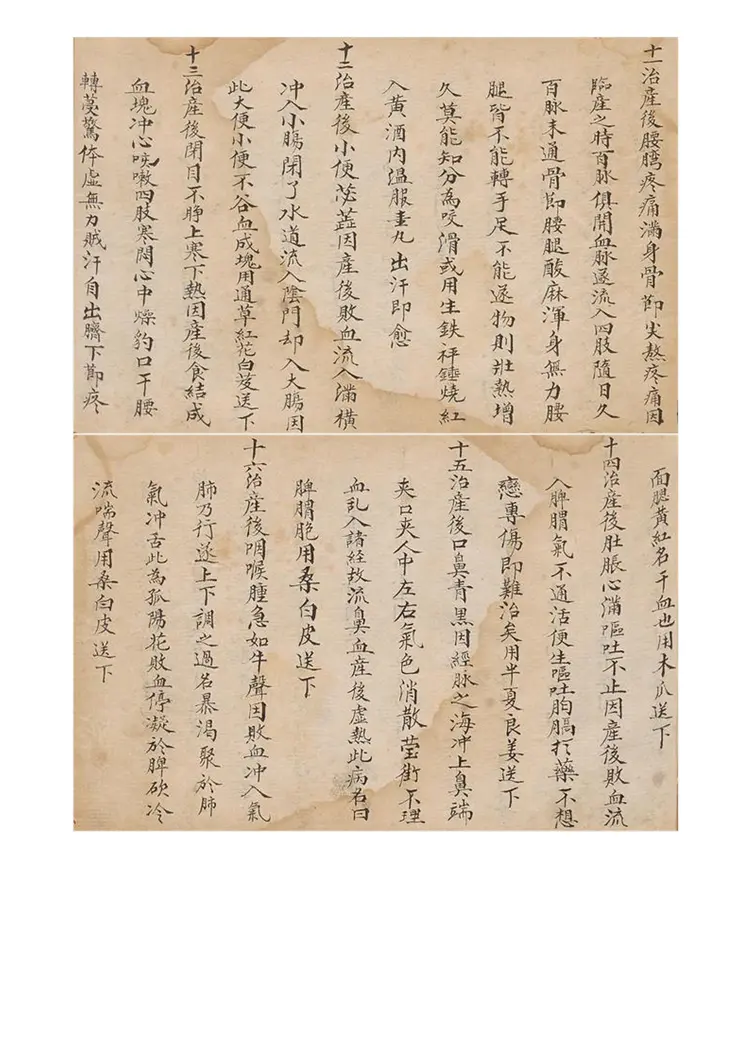 十一治産後腰𦛨疼痛滿身骨節尖熬疼痛因
臨産之時百脉俱開血脉遂流入四肢隨日久
百脉未通骨節腰腿酸麻渾身無力腰
腿皆不能轉手足不能遂物則壯熱增
久莫能知分為咬滑或用生鉄秤錘燒紅
入黄酒内温服壹丸出汗即愈
十二治産後小便因産後敗血流入滿橫
冲入小膓閉了水道流入陰門却入大膓因
此大便小便不谷血成塊用通草紅花白芨送下
十三治産後閉目不睁上寒下熱因産後食結成
血塊冲心咳嗽四肢寒悶心中燥豹口干腰
轉蔓驚体虛無力贼汗自出臍下節疼
面腮黄紅名干血也用木瓜送下
十四治産後肚脹心滿嘔吐不止因産後敗血流
入脾胃氣不通活便生嘔吐胸膈打藥不想
戀專傷即難治矣用半夏良姜送下
十五治産後口鼻青黑因經脉之海冲上鼻端
夾口夾人中左右氣色消散莹街不理
血乱入諸経故流鼻血産後虛熱此病名曰
脾胃胞用桑白皮送下
十六治産後咽喉腫急如牛聲因敗血冲入氣
肺乃行遂上下調之過名暴渴聚於肺
氣冲舌此為孤陽花敗血停凝於脾欬冷
流喘聲用桑白皮送下